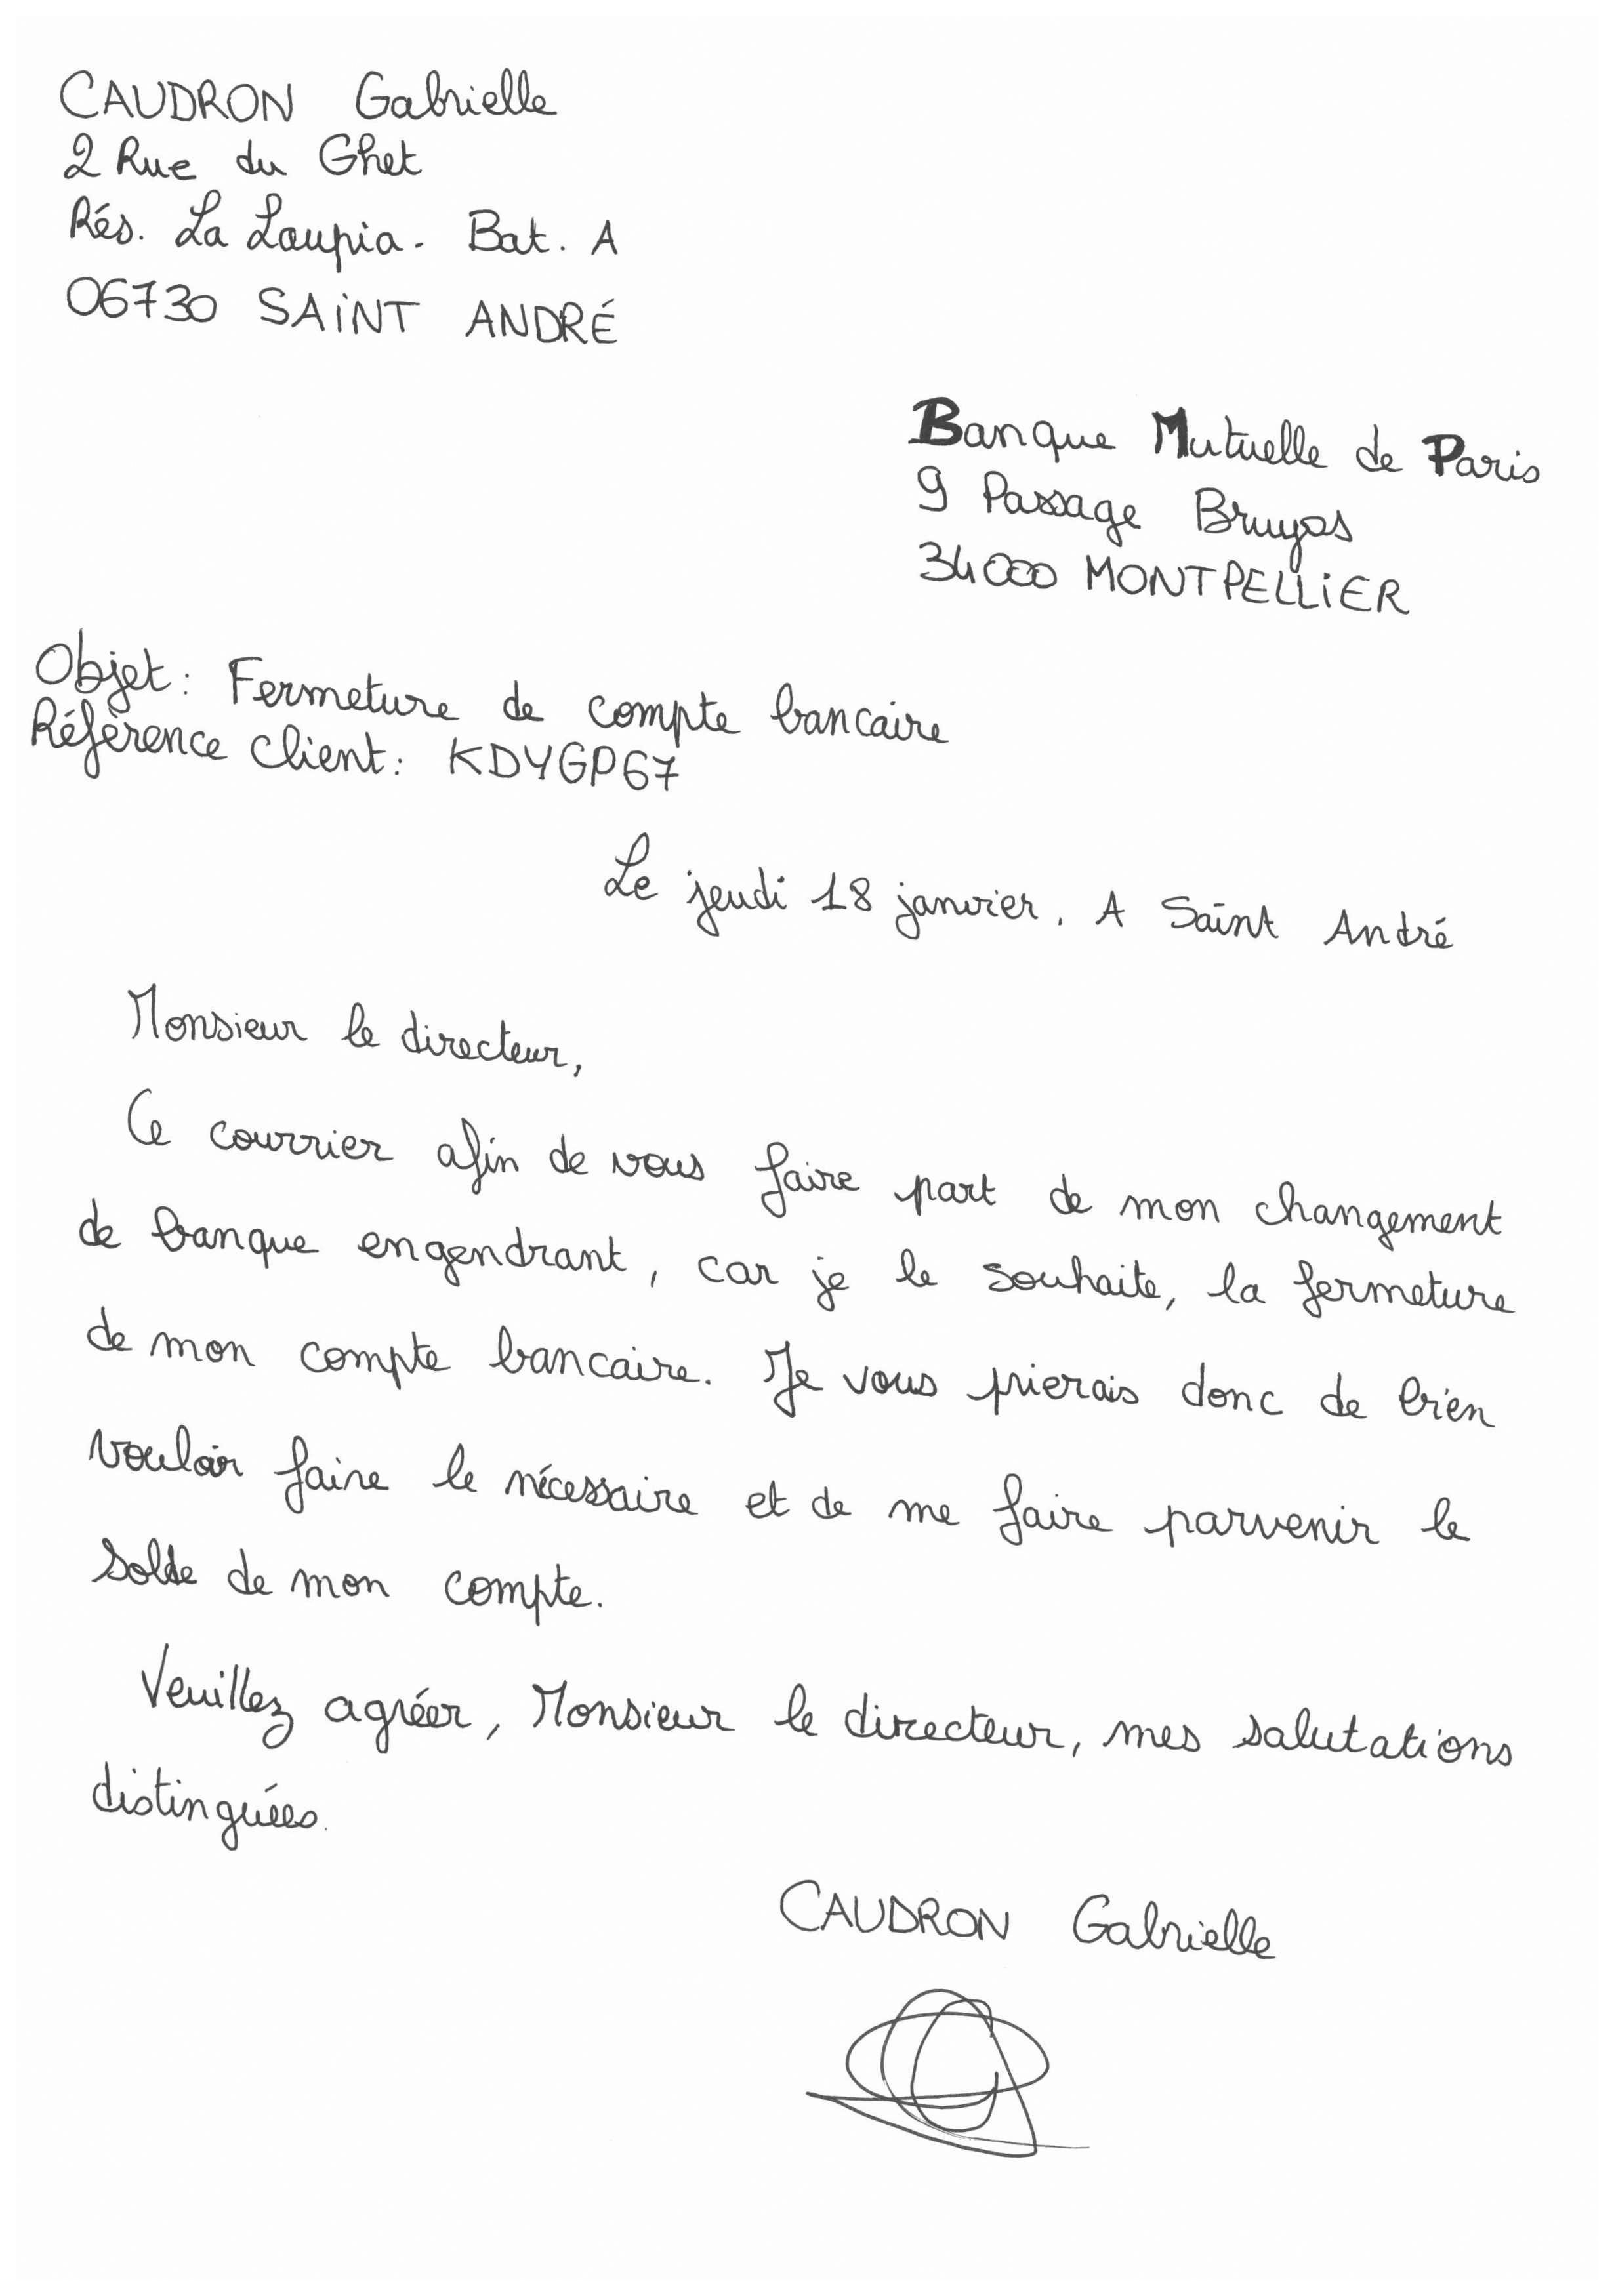 CAUDRON Gabrielle
2 Rue du Ghet
Rés. La Loupia. Bat. A
06730 SAINT ANDRÉ
Banque Mutuelle de Paris
9 Passage Bruyas
34000 MONTPELLIER
Objet: Fermeture de compte bancaire
Référence Client: KDYGP67
Le jeudi 18 janvier. A Saint André
Monsieur le directeur,
Ce courrier afin de vous faire part de mon changement
de banque engendrant, car je le souhaite, la fermeture
de mon compte bancaire. Je vous prierais donc de bien
vouloir faire le nécessaire et de me faire parvenir le
solde de mon compte.
Veuillez agréer, Monsieur le directeur, mes salutations
distinguées.
CAUDRON Gabrielle